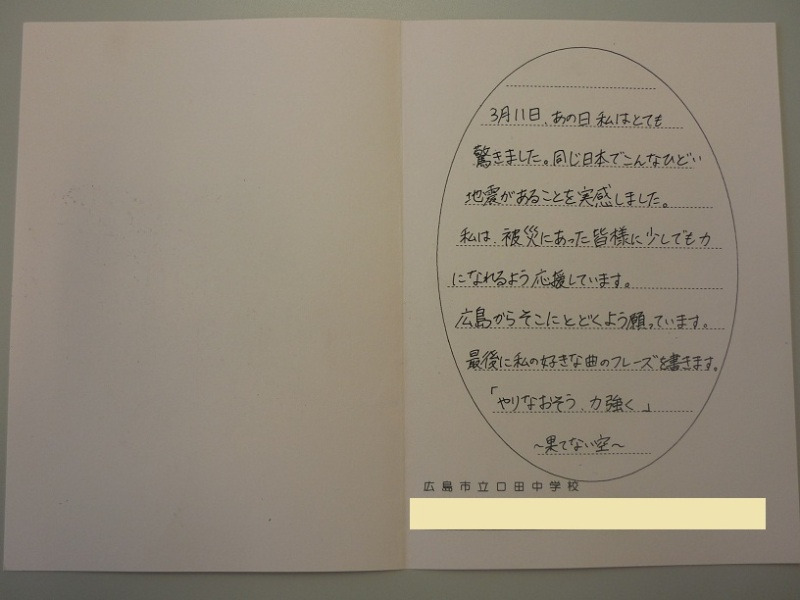 3月11日、あの日私はとても
驚きました。同じ日本でこんなひどい
地震があることを実感しました。
私は、被災にあった皆様に少しでも力
になれるよう応援しています。
広島からそこにとどくよう願っています。
最後に私の好きな曲のフレーズを書きます。
「やりなおそう、力強く」
～果てない空～
広島市立口田中学校